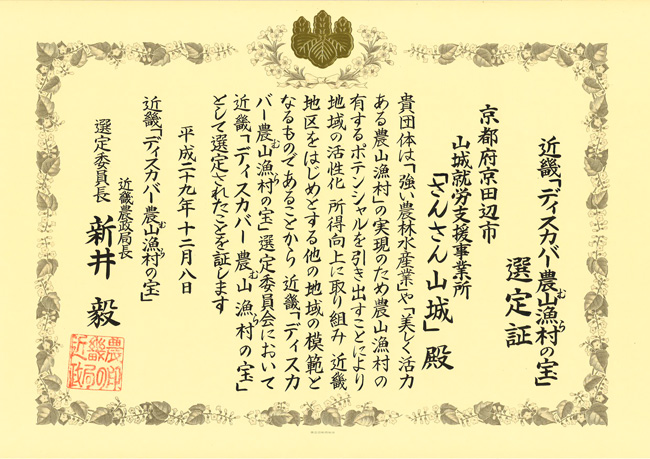 近畿「ディスカバー農山漁村の宝」
むら
選定証
京都府京田辺市
山城就労支援事業所
「さんさん山城」殿
貴団体は「強い農林水産業」や「美しく活力
ある農山漁村」の実現のため農山漁村の
有するポテンシャルを引き出すことにより
地域の活性化 所得向上に取り組み 近畿
地区をはじめとする他の地域の模範と
なるものであることから 近畿「ディスカ
バー農山漁村の宝」選定委員会において
むら
近畿「ディスカバー農山漁村の宝」
むら
として選定されたことを証します
平成二十九年十二月八日
近畿「ディスカバー農山漁村の宝」
むら
選定委員長
近畿農政局長
新井 毅
近畿農政局の印